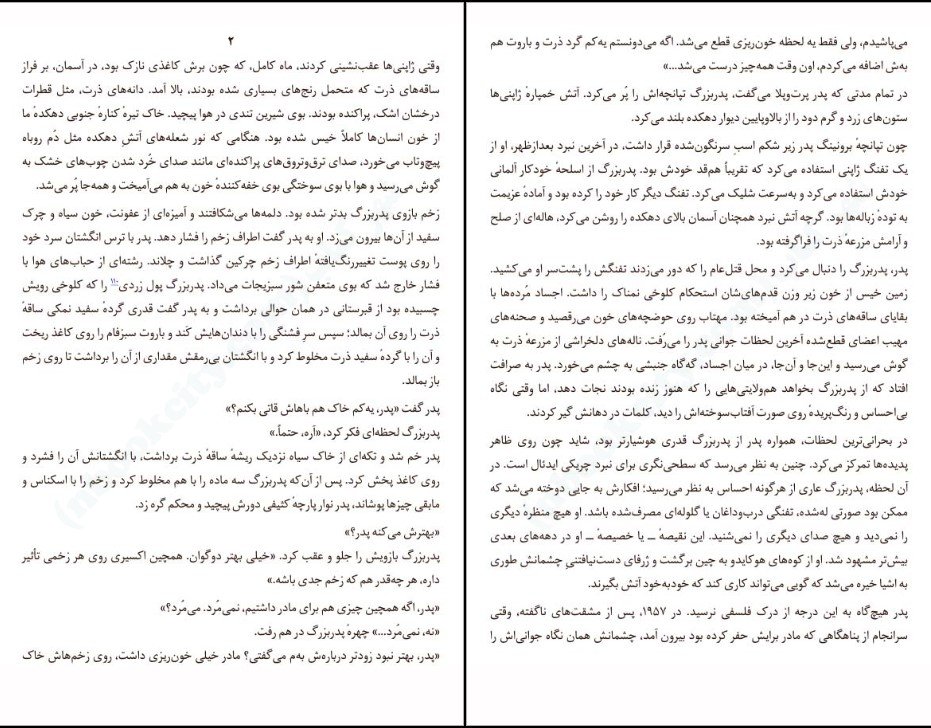 ۲
وقتی ژاپنی‌ها عقب‌نشینی کردند، ماه کامل، که چون برش کاغذی نازک بود، در آسمان، بر فراز
ساقه‌های ذرت که متحمل رنج‌های بسیاری شده بودند، بالا آمد. دانه‌های ذرت، مثل قطرات
درخشان اشک، پراکنده بودند. بوی شیرین تندی در هوا پیچید. خاک تیرهٔ کنارهٔ جنوبی دهکده ما
از خون انسان‌ها کاملاً خیس شده بود. هنگامی که نور شعله‌های آتشِ دهکده مثل دُم روباه
پیچ‌وتاب می‌خورد، صدای ترق‌وتروق‌های پراکنده‌ای مانند صدای خُرد شدن چوب‌های خشک به
گوش می‌رسید و هوا با بوی سوختگی بوی خفه‌کنندهٔ خون به هم می‌آمیخت و همه‌جا پُر می‌شد.
زخم بازوی پدربزرگ بدتر شده بود. دلمه‌ها می‌شکافتند و آمیزه‌ای از عفونت، خون سیاه و چرک
سفید از آن‌ها بیرون می‌زد. او به پدر گفت اطراف زخم را فشار دهد. پدر با ترس انگشتان سرد خود
را روی پوست تغییررنگ‌یافتهٔ اطراف زخم چرکین گذاشت و چلاند. رشته‌ای از حباب‌های هوا با
فشار خارج شد که بوی متعفن شور سبزیجات می‌داد. پدربزرگ پول زردی را که کلوخی رویش
چسبیده بود از قبرستانی در همان حوالی برداشت و به پدر گفت قدری گردهٔ سفید نمکی ساقهٔ
ذرت را روی آن بمالد؛ سپس سرِ فشنگی را با دندان‌هایش کَند و باروت سبزفام را روی کاغذ ریخت
و آن را با گردهٔ سفید ذرت مخلوط کرد و با انگشتان بی‌رمقش مقداری از آن را برداشت تا روی زخم
باز بمالد.
پدر گفت «پدر، یه‌کم خاک هم باهاش قاتی بکنم؟»
پدربزرگ لحظه‌ای فکر کرد، «آره، حتماً.»
پدر خم شد و تکه‌ای از خاک سیاه نزدیک ریشهٔ ساقهٔ ذرت برداشت، با انگشتانش آن را فشرد و
روی کاغذ پخش کرد. پس از آن‌که پدربزرگ سه ماده را با هم مخلوط کرد و زخم را با اسکناس و
مابقی چیزها پوشاند، پدر نوار پارچهٔ کثیفی دورش پیچید و محکم گره زد.
«بهترش می‌کنه پدر؟»
پدربزرگ بازویش را جلو و عقب کرد. «خیلی بهتر دوگوان. همچین اکسیری روی هر زخمی تأثیر
داره، هر چه‌قدر هم که زخم جدی باشه.»
«پدر، اگه همچین چیزی هم برای مادر داشتیم، نمی‌مُرد. می‌مُرد؟»
«نه، نمی‌مُرد...» چهرهٔ پدربزرگ در هم رفت.
«پدر، بهتر نبود زودتر درباره‌ش به‌م می‌گفتی؟ مادر خیلی خون‌ریزی داشت، روی زخم‌هاش خاک
می‌پاشیدم، ولی فقط یه لحظه خون‌ریزی قطع می‌شد. اگه می‌دونستم یه‌کم گرد ذرت و باروت هم
به‌ش اضافه می‌کردم، اون وقت همه‌چیز درست می‌شد...»
در تمام مدتی که پدر پرت‌وپلا می‌گفت، پدربزرگ تپانچه‌اش را پُر می‌کرد. آتش خمپارهٔ ژاپنی‌ها
ستون‌های زرد و گرم دود را از بالاوپایین دیوار دهکده بلند می‌کرد.
چون تپانچهٔ برونینگ پدر زیر شکم اسبِ سرنگون‌شده قرار داشت، در آخرین نبرد بعدازظهر، او از
یک تفنگ ژاپنی استفاده می‌کرد که تقریباً هم‌قد خودش بود. پدربزرگ از اسلحهٔ خودکار آلمانی
خودش استفاده می‌کرد و به‌سرعت شلیک می‌کرد. تفنگ دیگر کار خود را کرده بود و آمادهٔ عزیمت
به تودهٔ زباله‌ها بود. گرچه آتش نبرد همچنان آسمان بالای دهکده را روشن می‌کرد، هاله‌ای از صلح
و آرامش مزرعهٔ ذرت را فراگرفته بود.
پدر، پدربزرگ را دنبال می‌کرد و محل قتل‌عام را که دور می‌زدند تفنگش را پشت‌سر او می‌کشید.
زمین خیس از خون زیر وزن قدم‌های‌شان استحکام کلوخی نمناک را داشت. اجساد مُرده‌ها با
بقایای ساقه‌های ذرت در هم آمیخته بود. مهتاب روی حوضچه‌های خون می‌رقصید و صحنه‌های
مهیب اعضای قطع‌شده آخرین لحظات جوانی پدر را می‌رُفت. ناله‌های دلخراشی از مزرعهٔ ذرت به
گوش می‌رسید و این‌جا و آن‌جا، در میان اجساد، گه‌گاه جنبشی به چشم می‌خورد. پدر به صرافت
افتاد که از پدربزرگ بخواهد هم‌ولایتی‌هایی را که هنوز زنده بودند نجات دهد، اما وقتی نگاه
بی‌احساس و رنگ‌پریدهٔ روی صورت آفتاب‌سوخته‌اش را دید، کلمات در دهانش گیر کردند.
در بحرانی‌ترین لحظات، همواره پدر از پدربزرگ قدری هوشیارتر بود، شاید چون روی ظاهر
پدیده‌ها تمرکز می‌کرد. چنین به نظر می‌رسد که سطحی‌نگری برای نبرد چریکی ایدئال است. در
آن لحظه، پدربزرگ عاری از هرگونه احساس به نظر می‌رسید؛ افکارش به جایی دوخته می‌شد که
ممکن بود صورتی له‌شده، تفنگی درب‌وداغان یا گلوله‌ای مصرف‌شده باشد. او هیچ منظرهٔ دیگری
را نمی‌دید و هیچ صدای دیگری را نمی‌شنید. این نقیصهٔ ــ یا خصیصهٔ ــ او در دهه‌های بعدی
بیش‌تر مشهود شد. او از کوه‌های هوکایدو به چین برگشت و ژرفای دست‌نیافتنیِ چشمانش طوری
به اشیا خیره می‌شد که گویی می‌تواند کاری کند که خودبه‌خود آتش بگیرند.
پدر هیچ‌گاه به این درجه از درک فلسفی نرسید. در ۱۹۵۷، پس از مشقت‌های ناگفته، وقتی
سرانجام از پناهگاهی که مادر برایش حفر کرده بود بیرون آمد، چشمانش همان نگاه جوانی‌اش را